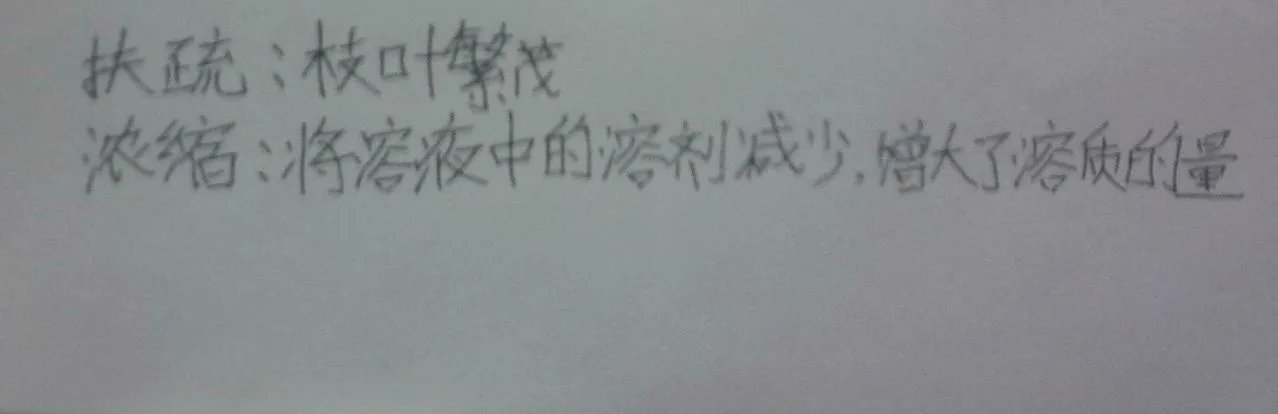 扶疏：枝叶繁茂
浓缩：将溶液中的溶剂减少，增大了溶质的量